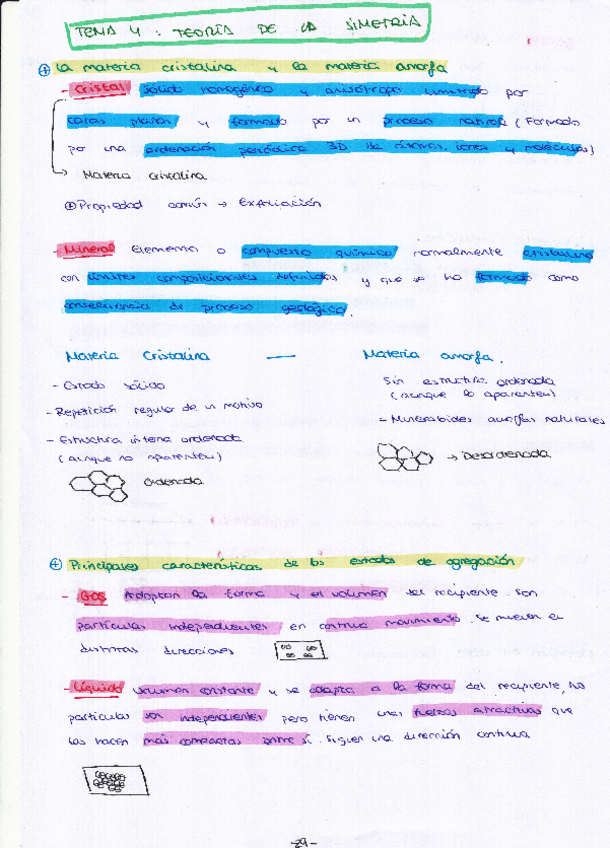 TEMA 4 : TEORÍA DE LA SIMETRIA
La materia cristalina y la materia amorfa
- Cristal sólido homogéneo y anisótropo limitado por
caras planas y formado por un proceso natural (Formado
por una ordenación periódica 3D de átomos, iones y moléculas)
Materia Cristalina
Propiedad común → Exfoliación
- Mineral Elemento o compuesto químico normalmente cristalino
con límites composicionales definidos y que se ha formado como
consecuencia de proceso geológico.
Materia Cristalina — Materia amorfa.
- Estado sólido
- Repetición regular de un motivo
- Estructura interna ordenada
(aunque no aparenten)
Ordenada
Sin estructura ordenada
(aunque lo aparenten)
- Mineraloides amorfos naturales
→ Desordenada
Principales características de los estados de agregación
- Gas Adoptan la forma y el volumen del recipiente. Son
partículas independientes en continuo movimiento. Se mueven en
distintas direcciones
- Líquido Volumen constante y se adapta a la forma del recipiente, las
partículas son independientes pero tienen unas fuerzas atractivas que
las hacen más compactas entre sí. Siguen una dirección continua
-29-